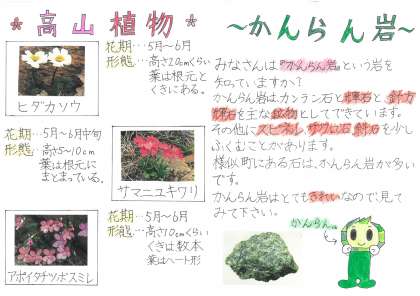 *高山植物*
花期…5月～6月
形態…高さ20cmくらい
葉は根元と
くきにある。
ヒダカソウ
花期…5月～6月中旬
形態…高さ5～10cm
葉は根元に
まとまっている。
サマニユキワリ
花期…5月～6月
形態…高さ10cmくらい
くきは数本
葉はハート形
アポイタチツボスミレ
～かんらん岩～
みなさんは『かんらん岩』という岩を
知っていますか?
かんらん岩は、カンラン石と輝石と、斜方
輝石を主な鉱物としてできています。
その他にスピネル、ザクロ石、斜長石を少し
ふくむことがあります。
様似町にある石は、かんらん岩が多い
です。
かんらん岩はとてもきれいなので、見て
みて下さい。
かんらん